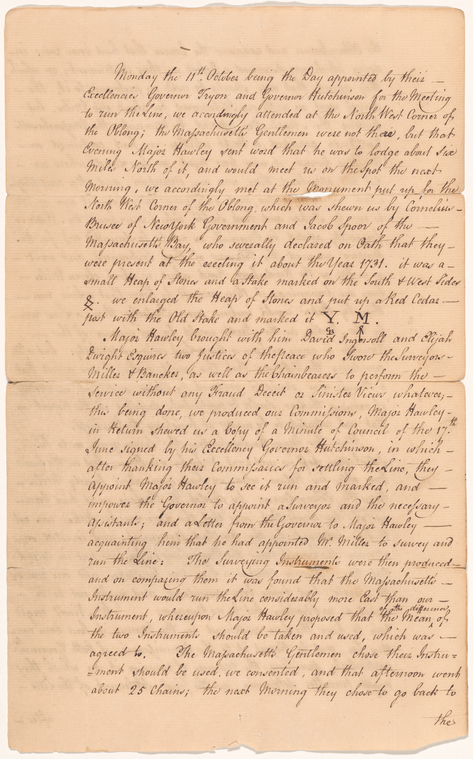 Monday the 11th, October being the Day appointed by their
Excellencies Governor Tryon and Governor Hutchinson for the Meeting
to run the Line, we accordingly attended at the North West Corner of
the Oblong; the Massachusetts Gentlemen were not there, but that
Evening Major Hawley sent word that he was to lodge about six
Miles North of it, and would meet us on the Spot the next
Morning, we accordingly met at the Monument put up for the
North West Corner of the Oblong, which was shewn us by Cornelius
Bruise of New York Government and Jacob Spoor of the
Massachusetts Bay, who severally declared on Oath that they
were present at the erecting it about the Year 1731. it was a
small Heap of Stones and a Stake marked on the South & West Sides
we enlarged the Heap of Stones and put up a Red Cedar
post with the Old Stake and marked it Y. M.
Major Hawley brought with him David Ingersoll and Elijah
Dwight Esquires two Justices of the Peace who Swore the Surveyors
Miller & Bancker, as well as the Chainbearers to perform the
Service without any Fraud Deceit or Sinister Views whatever;
this being done, we produced our Commissions, Major Hawley
in Return shewed us a Copy of a Minute of Council of the 17th
June signed by his Excellency Governor Hutchinson, in which
after thanking their Commissaries for settling the Line, they
appoint Major Hawley to see it run and marked, and
impower the Governor to appoint a Surveyor and the necessary
assistants; and a Letter from the Governor to Major Hawley
acquainting him that he had appointed Mr. Miller to survey and
run the Line: The Surveying Instruments were then produced
and on comparing them it was found that the Massachusetts
Instrument would run the Line considerably more East than our
Instrument, whereupon Major Hawley proposed that the Mean of the difference of
the two Instruments should be taken and used, which was
agreed to. The Massachusetts Gentlemen chose their Instru-
-ment should be used, we consented, and that afternoon went
about 25 Chains; the next Morning they chose to go back to
the